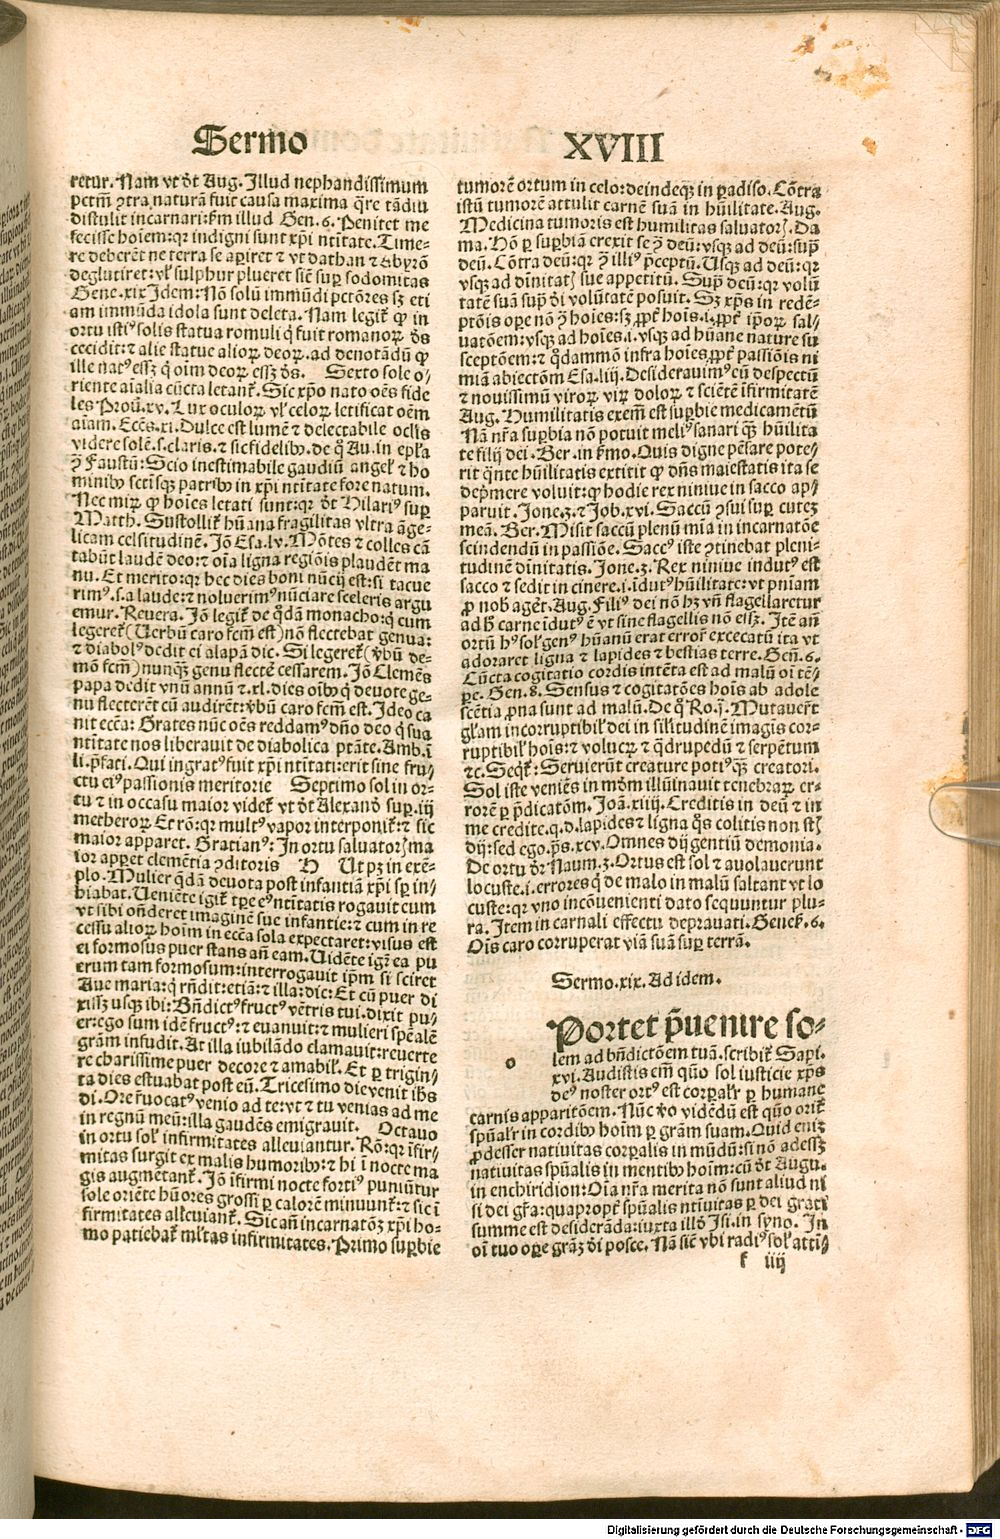 Sermo XVIII
retur. Nam vt dt̄ Aug. Illud nephandissimum
pctm̄ ꝯtra naturā fuit causa maxima q̄re tādiu
distulit incarnari: km̄ illud Gen. 6. Penitet me
fecisse hoīem: qr indigni sunt xp̄i ntītate. Time-
re deberēt ne terra se aꝑiret ⁊ vt dathan ⁊ Abyrō
deglutiret: vł sulphur plueret sic̄ suꝑ sodomitas
Gene. xix Idem: Nō solū immūdi pctōres sʒ eti
am immūda idola sunt deleta. Nam legit̄ ꝙ in
ortu istiꝰ solis statua romuli q̄ fuit romanoꝝ dꝰs
cecidit: ⁊ alie statue alioꝝ deoꝝ. ad denotādū ꝙ
ille natꝰ essʒ q̄ oīm deoꝝ essʒ dꝰs. Sexto sole o/
riente aīalia cūcta letant̄. Sic xp̄o nato oēs fide
les Prou. xv. Lux oculoꝝ vł celoꝝ letificat oēm
aīam. Eccs. xi. Dulce est lumē ⁊ delectabile oclis
videre solē. s. claris. ⁊ sic fidelibꝰ. de q̄ Au. in ep̄ła
ꝯ̄ Faustū: Scio inestimabile gaudiū angeł ⁊ ho
minibꝰ sctīsqʒ patribꝰ in xp̄i ntītate fore natum.
Nec miꝝ ꝙ hoīes letati sunt: qr dt̄ Hilariꝰ suꝑ
Matth. Sustollit̄ hūana fragilitas vltra āge-
licam celsitudinē. Iō Esa. lv. Mōtes ⁊ colles cā
tabūt laudē deo: ⁊ oīa ligna regiōis plaudēt ma
nu. Et merito: qr hec dies boni nūcij est: si tacue
rimꝰ. s. a laude: ⁊ noluerimꝰ nūciare sceleris argu
emur. Revera. Iō legit̄ de q̄dā monacho: q̄ cum
legeret̄ (Verbū caro fcm̄ est) nō flectebat genua:
⁊ diabolꝰ dedit ei alapā dic. Si legeret̄ (ꝟbū de-
mō fcm̄) nunqʒ genu flectē cessarem. Iō Clemēs
papa dedit vnū annū ⁊ .xl. dies oībꝰ q̄ devote ge-
nu flecterēt cū audirēt: ꝟbū caro fcm̄ est. Ideo ca
nit ecc̄a: Grates nūc oēs reddamꝰ dn̄o deo q̄ sua
ntītate nos liberavit de diabolica ptāte. Amb. ī
li. p̄fati. Qui ingratꝰ fuit xp̄i ntītati: erit sine fru/
ctu eiꝰ passionis meritorie Septimo sol in or-
tu ⁊ in occasu maior videt̄ vt dt̄ Alexand̄ suꝑ. iij
metheroꝝ. Et rō: qr multꝰ vapor interponit̄: ⁊ sic
maior apparet. Gratianꝰ: In ortu saluatorꝭ ma
ior apꝑet clemētia ꝯditoris H Ut pʒ in exē-
plo. Mulier q̄dā devota post infantiā xp̄i sꝑ in/
hiabat. Ueniēte igit̄ tꝑe eꝰ ntītatis rogauit eum
vt sibi ōn̄deret imaginē sue infantie: ⁊ cum in re
cessu alioꝝ hoīm in ecc̄a sola expectaret: visus est
ei formosus puer stans añ eam. Uidēte igr̄ ea pu
erum tam formosum: interrogavit ip̄m si sciret
Aue maria: q̄ rn̄dit: etiā: ⁊ illa: dic: Et cū puer di
xissʒ usqʒ ibi: Bn̄dictꝰ fructꝰ vētris tui. dixit pu/
er: ego sum idē fructꝰ: ⁊ evanuit: ⁊ mulieri spēalē
grām infudit. At illa iubilādo clamauit: reuerte
re charissime puer decore ⁊ amabił. Et ꝑ trigin/
ta dies estuabat post eū. Tricesimo die venit ih̄s
di. Ore ꝶuocatꝰ venio ad te: vt ⁊ tu venias ad me
in regnū meū: illa gaudēs emigravit. Octauo
in ortu soł infirmitates alleuiantur. Rō: qr īfir/
mitas surgit ex malis humoribꝰ: ⁊ hi ī nocte ma
gis augmētant̄. Iō īfirmi nocte fortiꝰ puniūtur
sole oriēte hūores grossi ꝑ calorē minuunt̄: ⁊ sic ī
firmitates alleuiant̄. Sic añ incarnatōʒ xp̄i ho-
mo patiebat̄ młtas infirmitates. Primo suꝑbie
tumorē ortum in celo: deindeqʒ in ꝑadiso. Cōtra
istū tumorē attulit carnē suā in hūilitate. Aug.
Medicina tumoris est humilitas saluatorꝭ. Da
ma. Hō ꝑ suꝑbiā erexit se ꝯ̄ deū: vsqʒ ad deū: suꝑ
deū. Cōtra deū: qr ꝯ̄ illiꝰ p̄ceptū. Usqʒ ad deū: qr
vsqʒ ad dīnitatꝭ sue appetitū. Suꝑ deū: qr volū
tatē suā suꝑ di voluntatē posuit. Sʒ xp̄s in redē-
ptōis oꝑe nō ꝯ̄ hoīes: sʒ ꝓpt̄ hoīs. i. ꝓpt̄ ip̄oꝝ sal/
uatōem: vsqʒ ad hoīes. i. vsqʒ ad hūane nature su
sceptōem: ⁊ q̄dammō infra hoīes ꝓpt̄ passiōis ni
miā abiectōm Esa. liij. Desideravimꝰ eū despectū
⁊ novissimū viroꝝ virꝝ doloꝝ ⁊ sciētē īfirmitatē
Aug. Humilitatis exem̄ est suꝑbie medicamētū
Nā nr̄a suꝑbia nō potuit meliꝰ sanari qʒ hūilita
te filij dei. Ber. in km̄o. Quis digne pēsare pote/
rit q̄nte hūilitatis extitit ꝙ dn̄s maiestatis ita se
dep̄mere voluit: ꝙ hodie rex ninive in sacco ap/
paruit. Jone. 3. ⁊ Job. xvi. Saccū ꝯsui suꝑ cutez
meā. Ber. Misit saccū plenū mīa in incarnatōe
scindendū in passiōe. Saccꝰ iste ꝯtinebat pleni-
tudinē dīnitatis. Jone. 3. Rex ninive indutꝰ est
sacco ⁊ sedit in cinere. i. īdutꝰ hūilitate: vt pn̄iam
ꝓ nob̄ aget̄. Aug. Filiꝰ dei nō hʒ vn̄ flagellaretur
ad h̄ carne īdutꝰ ē vt sine flagellis nō essʒ. Itē añ
ortū hꝰ sol gen̄ꝰ hūanū erat error̄ excecatū ita vt
adoraret ligna ⁊ lapides ⁊ bestias terre. Geñ. 6.
Cūcta cogitatio cordis intēta est ad malū oī tē/
pe. Gen. 8. Sensus ⁊ cogitatōes hoīs ab adole
scētia ꝓna sunt ad malū. De q̄ Ro. ī. Mutauert̄
głam incorruptibił dei in siłitudinē imagīs cor-
ruptibił hoīs: ⁊ volucꝝ ⁊ q̄drupedū ⁊ serpētum
⁊c. Seqt̄: Servierūt creature potiꝰqʒ creatori.
Sol iste veniēs in mdm̄ illūinauit tenebraꝝ er-
rorē ꝑ p̄dicatōm. Joā. xiiij. Creditis in deū ⁊ in
me credite. q. d. lapides ⁊ ligna q̄s colitis non st̄
dij: sed ego. ps. xcv. Omnes dij gentiū demonia.
De ortu dr̄ Naum. 3. Ortus est sol ⁊ auolauerunt
locuste. i. errores q̄ de malo in malū saltant vt lo
custe: qr vno incōuenienti dato sequuntur plu-
ra. Item in carnali effectu depravati. Genes̄. 6.
Oīs caro corruperat viā suā suꝑ terrā.
Sermo. xix. Ad idem.
o
Portet p̄uenire so-
lem ad bn̄dictōem tuā. scribit̄ Sapi.
xvi. Audistis em̄ quō sol iusticie xp̄s
deꝰ noster ortꝰ est corꝑałr ꝑ humane
carnis apparitōem. Nūc ꝟo vidēdū est quō orit̄
spūałr in cordibꝰ hoīm ꝑ grām suam. Quid enīʒ
ꝓdesset nativitas corꝑalis in mūdū: si nō adessʒ
nativitas spūalis in mentibꝰ hoīm: cū dt̄ Augu.
in enchiridion: Oīa nr̄a merita nō sunt aliud ni
si dei gr̄a: quapropt̄ spūalis ntīvitas ꝑ dei gratꝭ
summe est desiderāda: iuxta illō Isi. in syno. In
oī tuo oꝑe grāʒ di posce. Nā sic̄ vbi radiꝰ soł attī/
k iiij
Digitalisierung gefördert durch die Deutsche Forschungsgemeinschaft - DFG